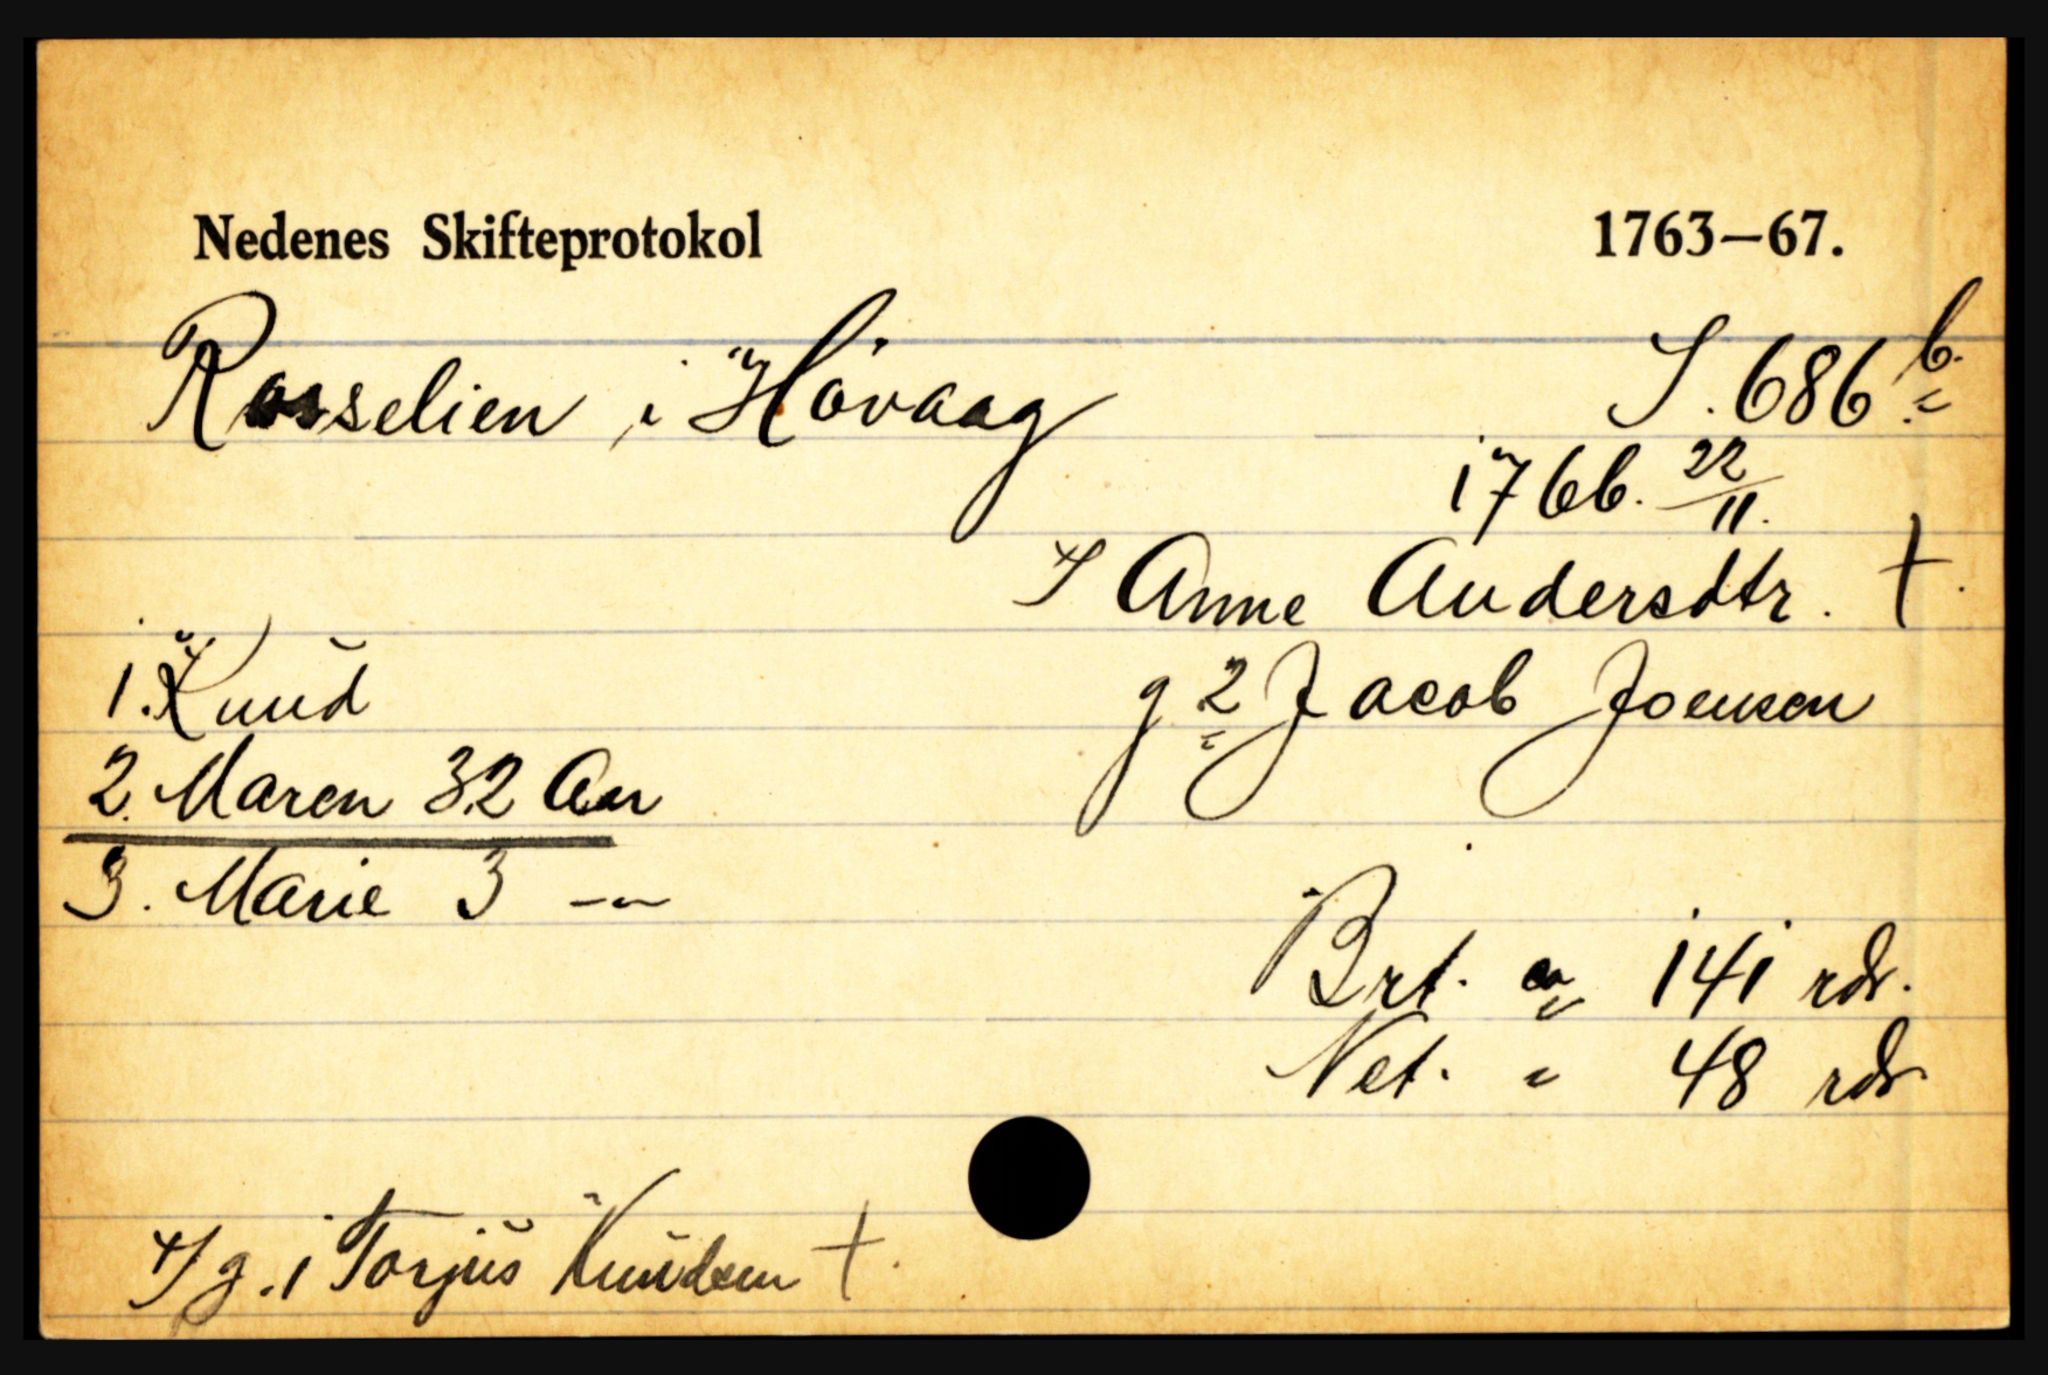 Nedenes Skifteprotokol 1763—67.
Rosselien i Hövaag S. 686 b.
1766. 22/11.
✗ Anne Andersdtr. †.
1. Knud g 2 Jacob Joensen
2. Maren 32 Aar
3. Marie 3 —„—
Brt. ca 141 rdr.
Net. " 48 rdr
✗ g. 1 Torjus Knudsen †.